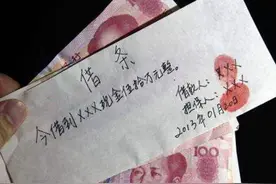 借条
今借到XXX现金伍拾万元整。
借款人：XXX
担保人：XXX
2013年01月20日
100